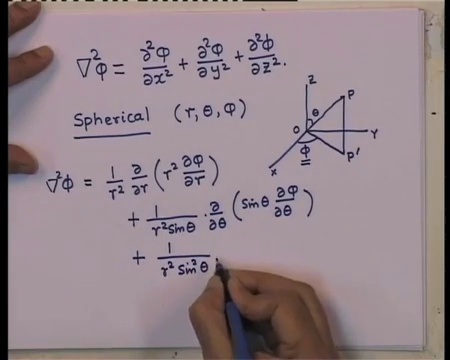 ∇²φ = ∂²φ/∂x² + ∂²φ/∂y² + ∂²φ/∂z².
Spherical (r, θ, φ)
Z
P
θ
O
Y
φ
P'
X
∇²φ = 1/r² ∂/∂r (r² ∂φ/∂r)
+ 1/r² sinθ · ∂/∂θ (sinθ ∂φ/∂θ)
+ 1/r² sin²θ ·